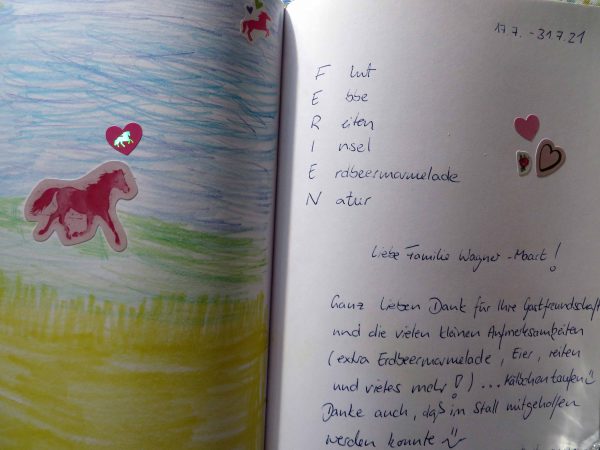 17.7. - 31.7.21
F lut
E bbe
R eiten
I nsel
E rdbeermarmelade
N atur
Liebe Familie Wagner - !
Ganz lieben Dank für Ihre Gastfreundschaft
und die vielen kleinen Aufmerksamkeiten
(extra Erdbeermarmelade, Eier, reiten
und vieles mehr!) ... Kälbchentaufen
Danke auch, daß im Stall mitgeholfen
werden konnte